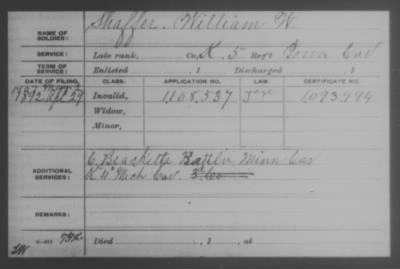 NAME OF SOLDIER: Shaffer, William W.
SERVICE: Late rank, Co. K. 5 Reg't Iowa Cav
TERM OF SERVICE: Enlisted , 1 Discharged , 1
DATE OF FILING. CLASS. APPLICATION NO. LAW. CERTIFICATE NO.
1892 Apl 29 Invalid, 1108.537 1093.994
Widow,
Minor,
ADDITIONAL SERVICES: C. Bracketts Battln Minn Cav
K 4" Mich Cav.
REMARKS:
Died , 1 , at